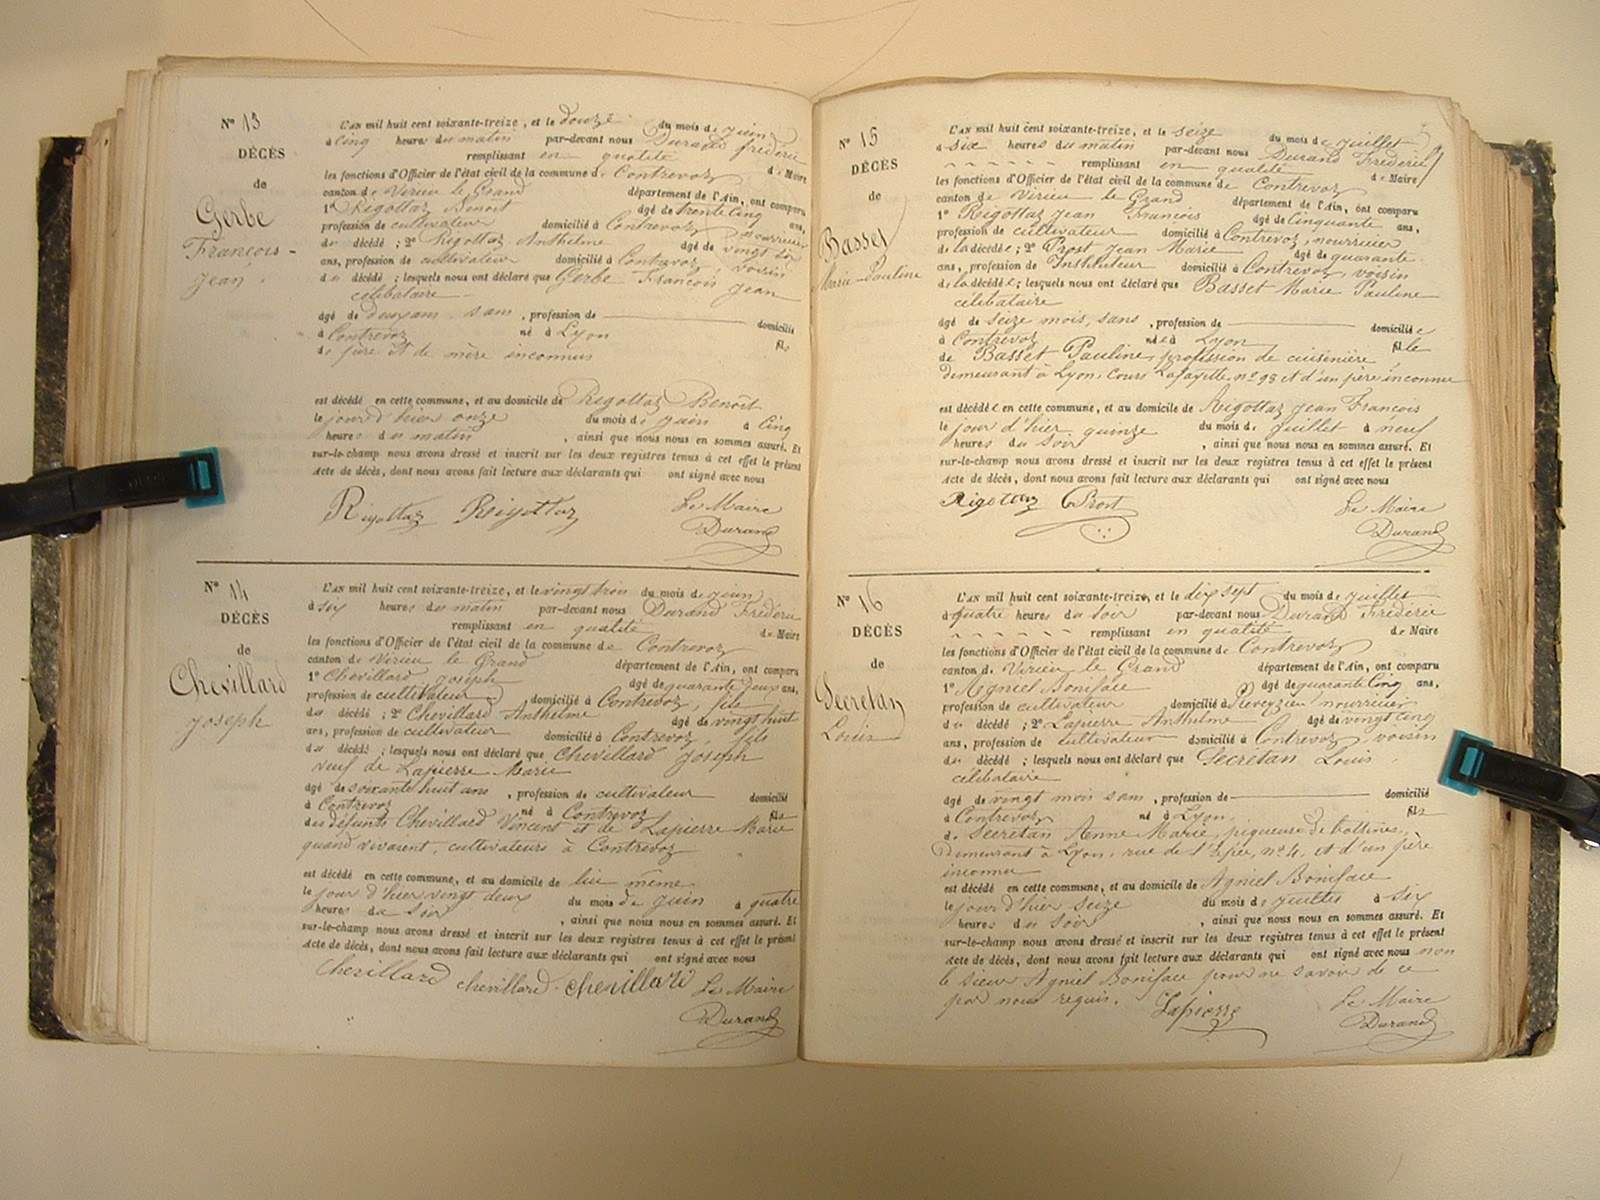 N° 13
DÉCÈS
de
Gerbe
François-
Jean.
L'AN mil huit cent soixante-treize, et le douze du mois de juin
à cinq heures du matin par-devant nous Durand frédéric
remplissant en qualité de Maire
les fonctions d'Officier de l'état civil de la commune de Contrevoz
canton de Virieu le Grand département de l'Ain, ont comparu
1° Rigottaz Benoit âgé de trente cinq ans,
profession de cultivateur domicilié à Contrevoz, nourricier
du décédé; 2° Rigottaz Anthelme âgé de vingt six
ans, profession de cultivateur domicilié à Contrevoz, voisin
du décédé; lesquels nous ont déclaré que Gerbe François Jean
célibataire
âgé de deux ans, sans, profession de domicilié
à Contrevoz né à Lyon fils
de père et de mère inconnus
est décédé en cette commune, et au domicile de Rigottaz Benoit
le jour d'hier onze du mois de juin à cinq
heures du matin, ainsi que nous nous en sommes assuré. Et
sur-le-champ nous avons dressé et inscrit sur les deux registres tenus à cet effet le présent
acte de décès, dont nous avons fait lecture aux déclarants qui ont signé avec nous
Rigottaz Rigottaz Le Maire
Durand
N° 14
DÉCÈS
de
Chevillard
Joseph
L'AN mil huit cent soixante-treize, et le vingt trois du mois de juin
à six heures du matin par-devant nous Durand Frédéric
remplissant en qualité de Maire
les fonctions d'Officier de l'état civil de la commune de Contrevoz
canton de Virieu le Grand département de l'Ain, ont comparu
1° Chevillard Joseph âgé de quarante deux ans,
profession de cultivateur domicilié à Contrevoz, fils
du décédé; 2° Chevillard Anthelme âgé de vingt huit
ans, profession de cultivateur domicilié à Contrevoz, fils
du décédé; lesquels nous ont déclaré que Chevillard Joseph
veuf de Lapierre Marie
âgé de soixante huit ans, profession de cultivateur domicilié
à Contrevoz né à Contrevoz fils
des défunts Chevillard Vincent et de Lapierre Marie
quand vivaient, cultivateurs à Contrevoz
est décédé en cette commune, et au domicile de lui même
le jour d'hier vingt deux du mois de juin à quatre
heures du soir, ainsi que nous nous en sommes assuré. Et
sur-le-champ nous avons dressé et inscrit sur les deux registres tenus à cet effet le présent
acte de décès, dont nous avons fait lecture aux déclarants qui ont signé avec nous
Chevillard chevillard chevillard Le Maire
Durand
N° 15
DÉCÈS
de
Basset
Marie-Pauline
L'AN mil huit cent soixante-treize, et le seize du mois de juillet
à six heures du matin par-devant nous Durand Frédéric
remplissant en qualité de Maire
les fonctions d'Officier de l'état civil de la commune de Contrevoz
canton de Virieu le Grand département de l'Ain, ont comparu
1° Rigottaz Jean François âgé de cinquante ans,
profession de cultivateur domicilié à Contrevoz, nourricier
de la décédée; 2° Prost Jean Marie âgé de quarante
ans, profession de Instituteur domicilié à Contrevoz, voisin
de la décédée; lesquels nous ont déclaré que Basset Marie Pauline
célibataire
âgé de seize mois, sans, profession de domiciliée
à Contrevoz née à Lyon fille
de Basset Pauline, profession de cuisinière
demeurant à Lyon, Cours Lafayette, n° 98 et d'un père inconnu
est décédée en cette commune, et au domicile de Rigottaz Jean François
le jour d'hier quinze du mois de juillet à neuf
heures du soir, ainsi que nous nous en sommes assuré. Et
sur-le-champ nous avons dressé et inscrit sur les deux registres tenus à cet effet le présent
acte de décès, dont nous avons fait lecture aux déclarants qui ont signé avec nous
Rigottaz Prost Le Maire
Durand
N° 16
DÉCÈS
de
Secretan
Louis
L'AN mil huit cent soixante-treize, et le dix sept du mois de juillet
à quatre heures du soir par-devant nous Durand Frédéric
remplissant en qualité de Maire
les fonctions d'Officier de l'état civil de la commune de Contrevoz
canton de Virieu le Grand département de l'Ain, ont comparu
1° Agniel Boniface âgé de quarante cinq ans,
profession de cultivateur domicilié à nourricier
du décédé; 2° Lapierre Anthelme âgé de vingt cinq
ans, profession de cultivateur domicilié à Contrevoz, voisin
du décédé; lesquels nous ont déclaré que Secretan Louis,
célibataire
âgé de vingt mois sans, profession de domicilié
à Contrevoz né à Lyon, fils
de Secretan Anne Marie, piqueuse de bottines,
demeurant à Lyon, rue de l'Epée, n° 4, et d'un père
inconnu
est décédé en cette commune, et au domicile de Agniel Boniface
le jour d'hier seize du mois de juillet à six
heures du soir, ainsi que nous nous en sommes assuré. Et
sur-le-champ nous avons dressé et inscrit sur les deux registres tenus à cet effet le présent
acte de décès, dont nous avons fait lecture aux déclarants qui ont signé avec nous non
le sieur Agniel Boniface pour ne savoir de ce
par nous requis. Lapierre Le Maire
Durand